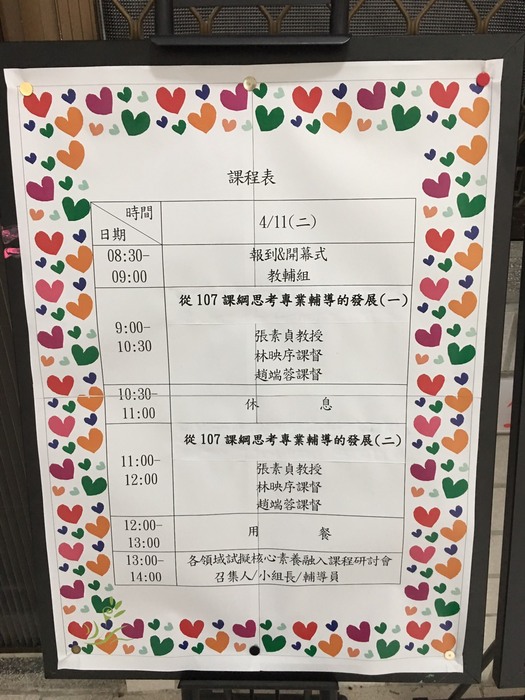 課程表
時間
日期
4/11(二)
08:30-
09:00
報到&開幕式
教輔組
9:00-
10:30
從107課綱思考專業輔導的發展(一)
張素貞教授
林映序課督
趙端蓉課督
10:30-
11:00
休 息
11:00-
12:00
從107課綱思考專業輔導的發展(二)
張素貞教授
林映序課督
趙端蓉課督
12:00-
13:00
用 餐
13:00-
14:00
各領域試擬核心素養融入課程研討會
召集人/小組長/輔導員